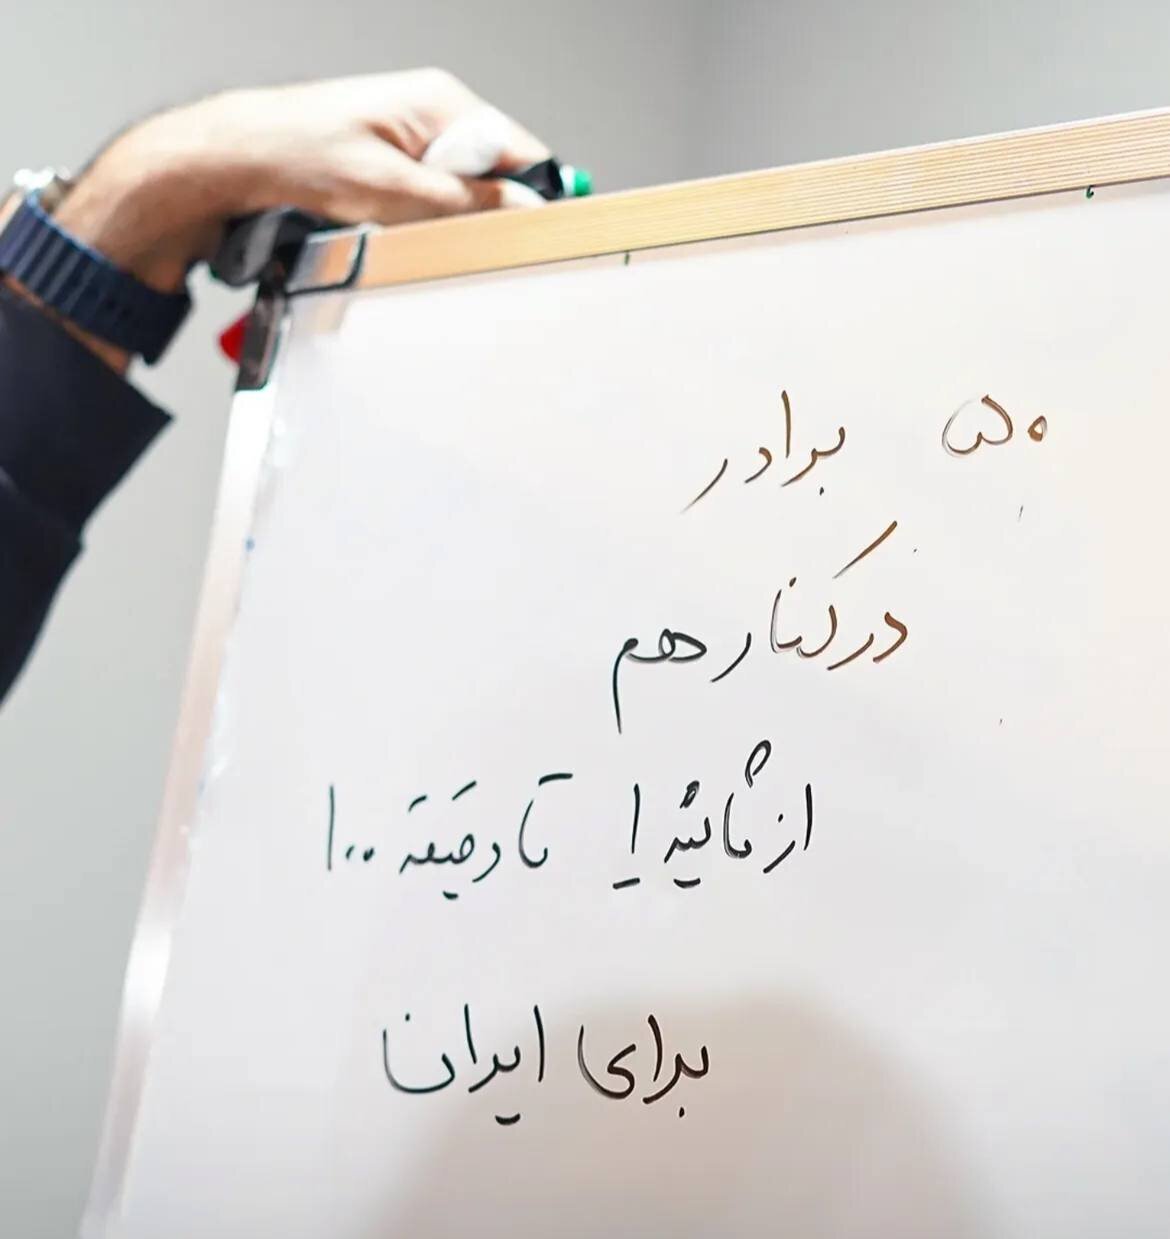 ۵۰ برادر
در کنار هم
از ثانیه ۱ تا دقیقه ۱۰۰
برای ایران